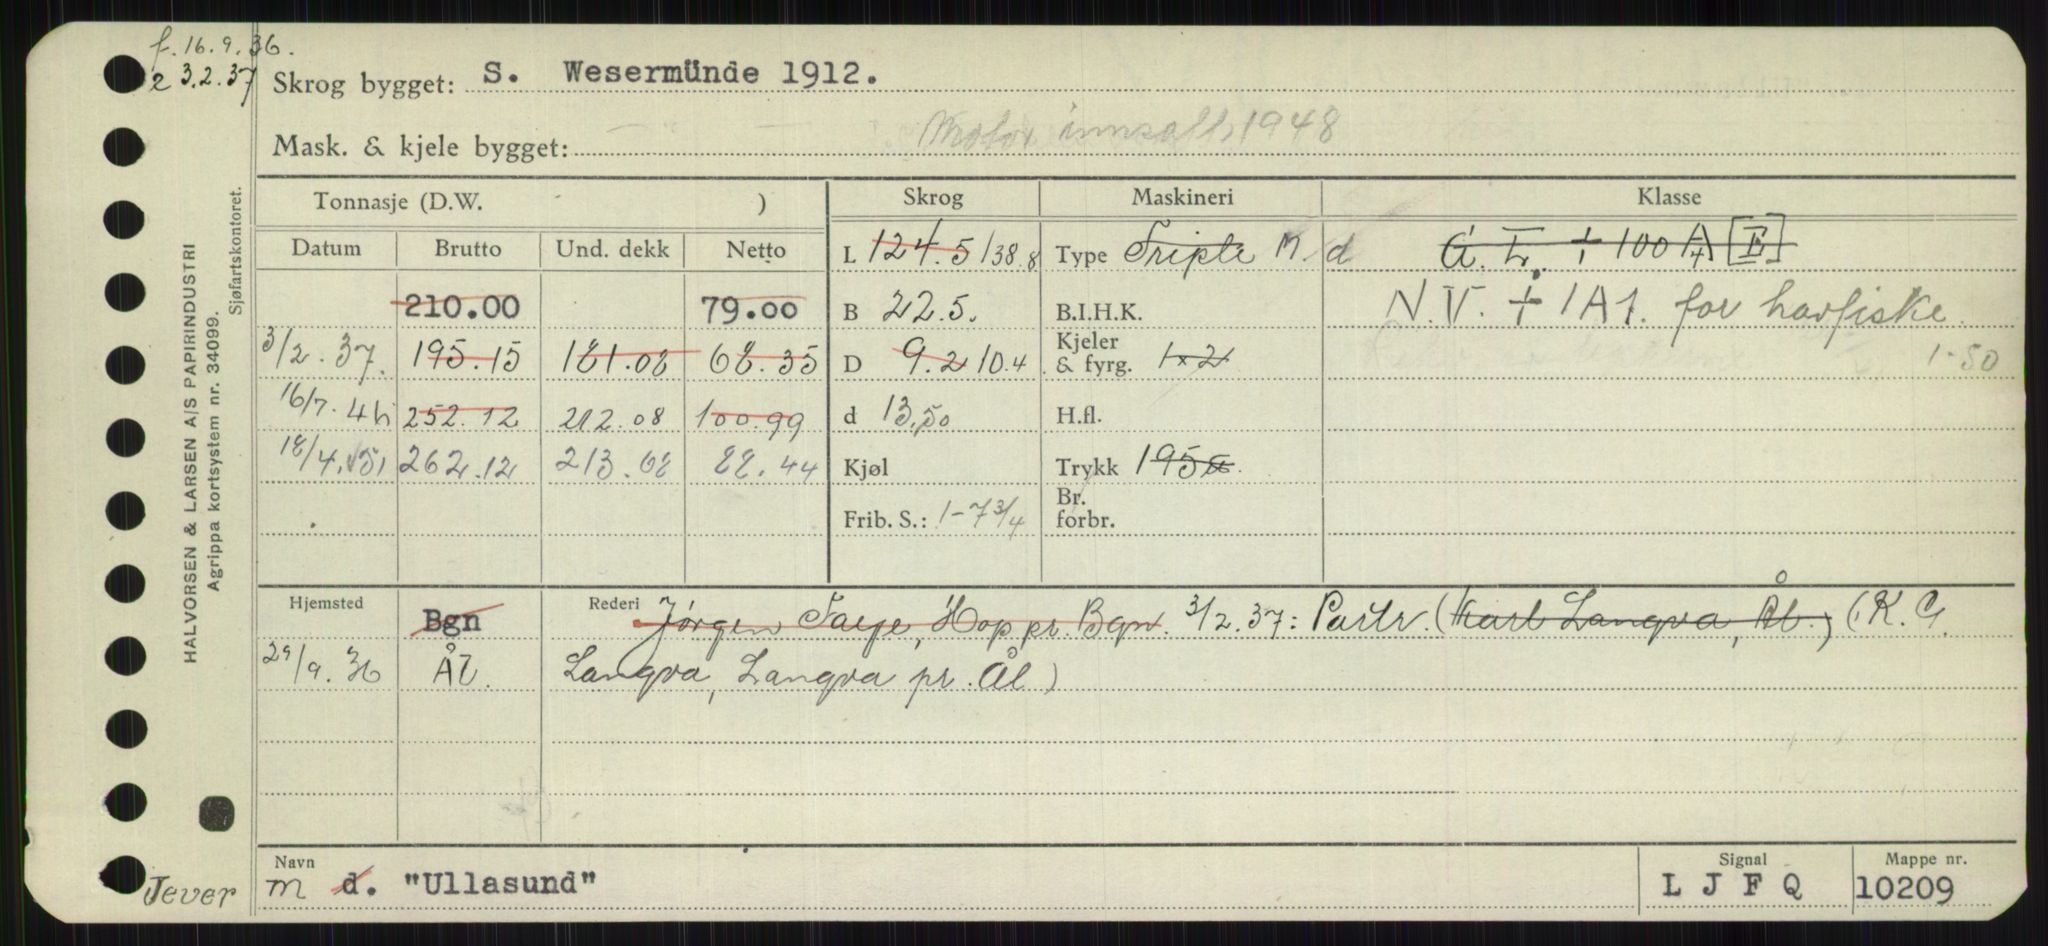 f. 16.9.36.
e 3.2.37
Skrog bygget: S. Wesermünde 1912.
Mask. & kjele bygget: Motor innsatt, 1948
HALVORSEN & LARSEN A/S PAPIRINDUSTRI
Agrippa kortsystem nr. 34099.
Sjøfartskontoret.
Tonnasje (D.W. ) Skrog Maskineri Klasse
Datum Brutto Und. dekk Netto L 124.5 138.8 Type Triple M d G. L. + 100 A/4 [E]
210.00 79.00 B 22.5. B.I.H.K. N.V. + 1A1. for havfiske
3/2.37. 195.15 181.08 68.35 D 9.2 10.4 Kjeler & fyrg. 1x2 1-50
16/7.46 252.12 212.08 100.99 d 13,50 H.fl.
18/4.51 262.12 213.68 88.44 Kjøl Trykk 195
Frib. S.: 1-7 3/4 Br. forbr.
Hjemsted Bgn Rederi Jørgen Faye, Hop pr. Bgn. 3/2.37: Partr. (Karl Langva, Ål.) (K. G.
29/9.36 ÅL. Langva, Langva pr. Ål)
Navn Signal Mappe nr.
m d. "Ullasund" L J F Q 10209
Jever